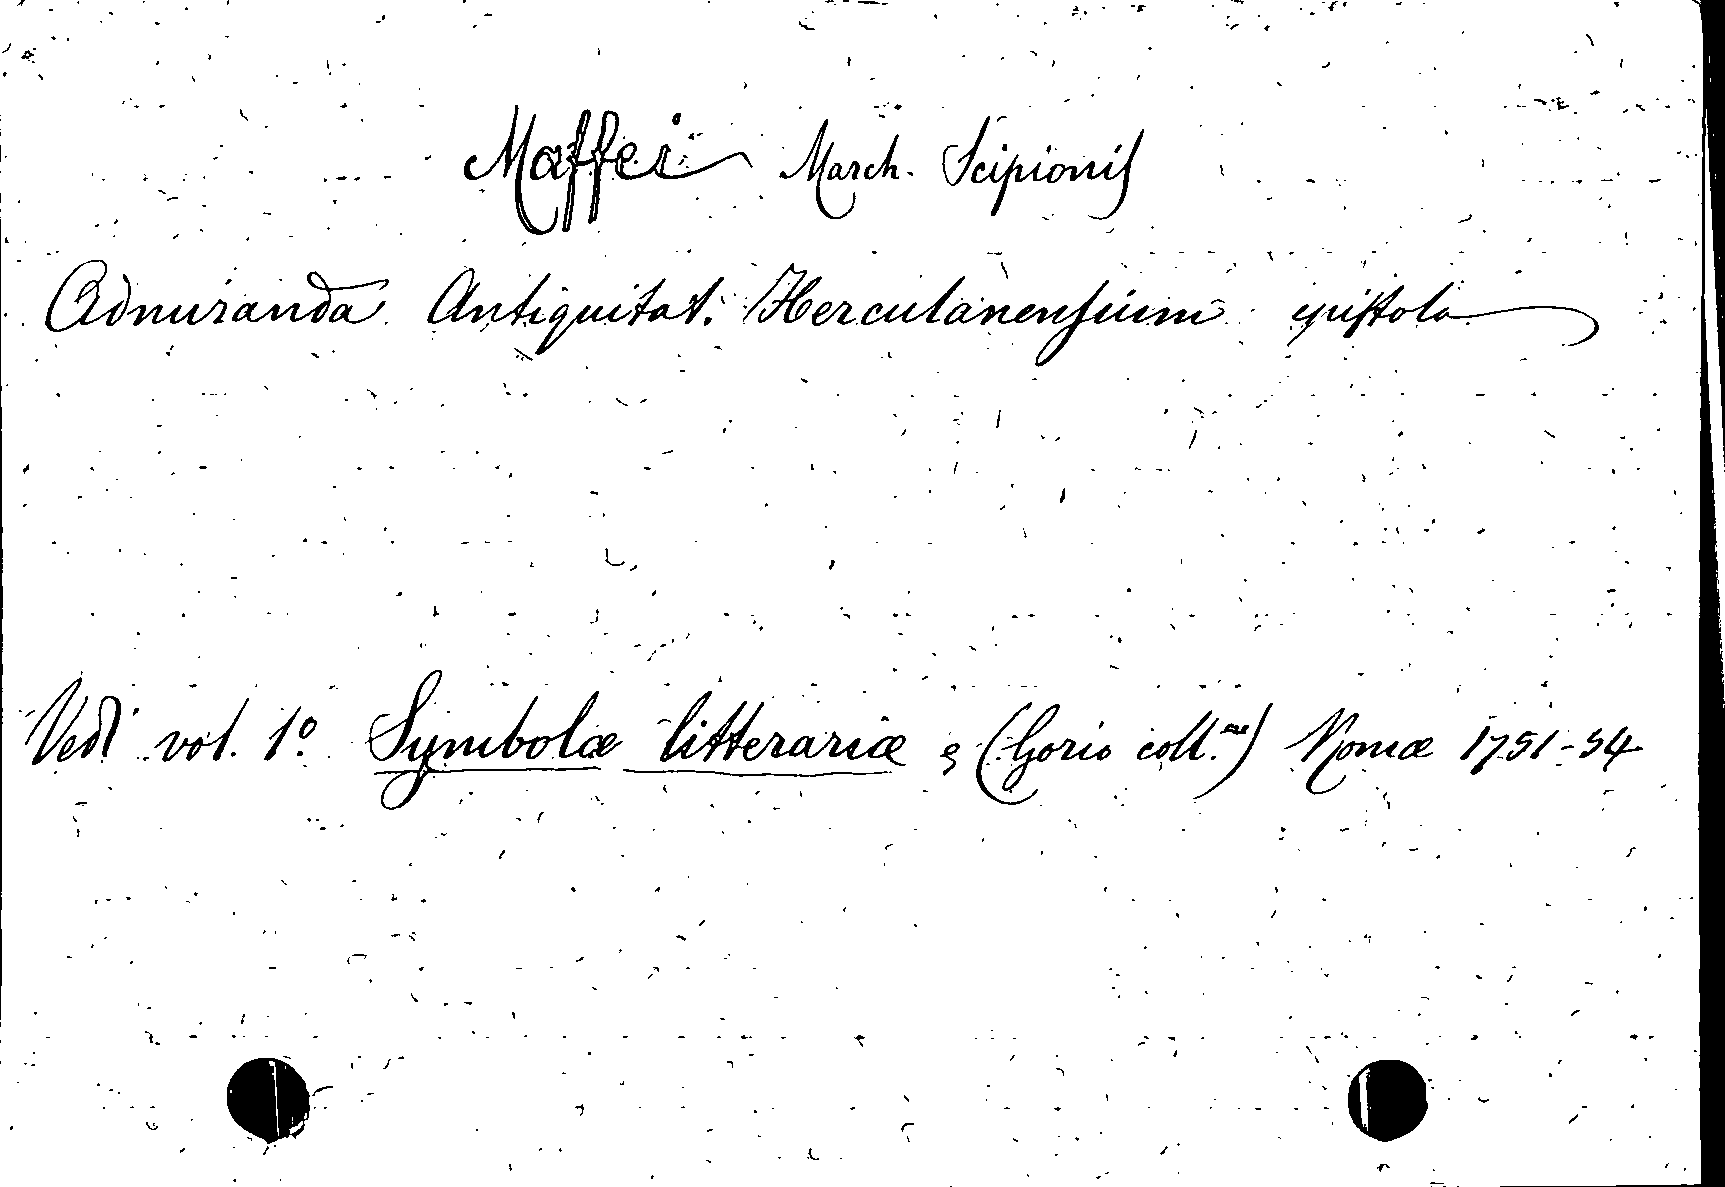 Maffei March. Scipionis
Admiranda Antiquitat. Herculanensium epistola
Vedi vol. 1º Symbolæ litterariæ & (Gorio coll.ne) Romæ 1751-54